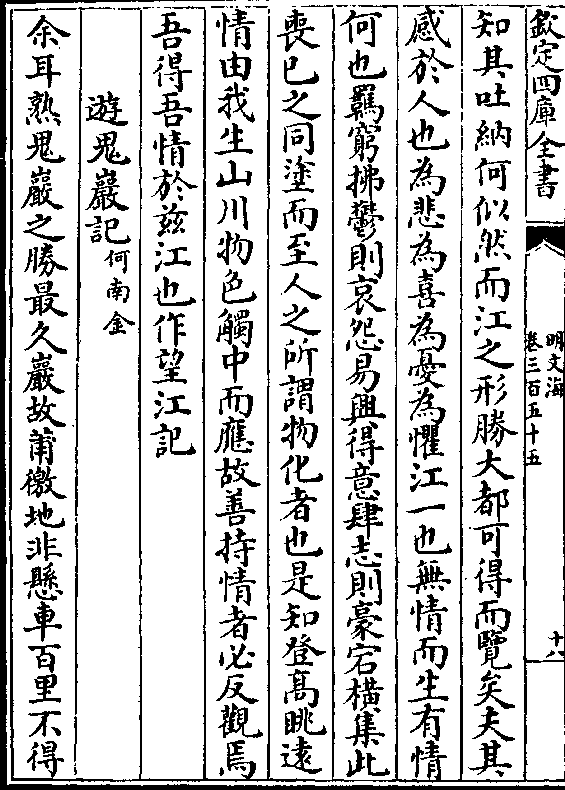 欽定四庫全書
明文海
卷三百五十五
十八
知其吐納何似然而江之形勝大都可得而覽矣夫其
感於人也為悲為喜為憂為懼江一也無情而生有情
何也羈窮拂鬱則哀怨易興得意肆志則豪宕橫集此
喪已之同塗而至人之所謂物化者也是知登高眺遠
情由我生山川物色觸中而應故善持情者必反觀焉
吾得吾情於茲江也作望江記
遊鬼巖記何南金
余耳熟鬼巖之勝最久巖故莆徼地非懸車百里不得